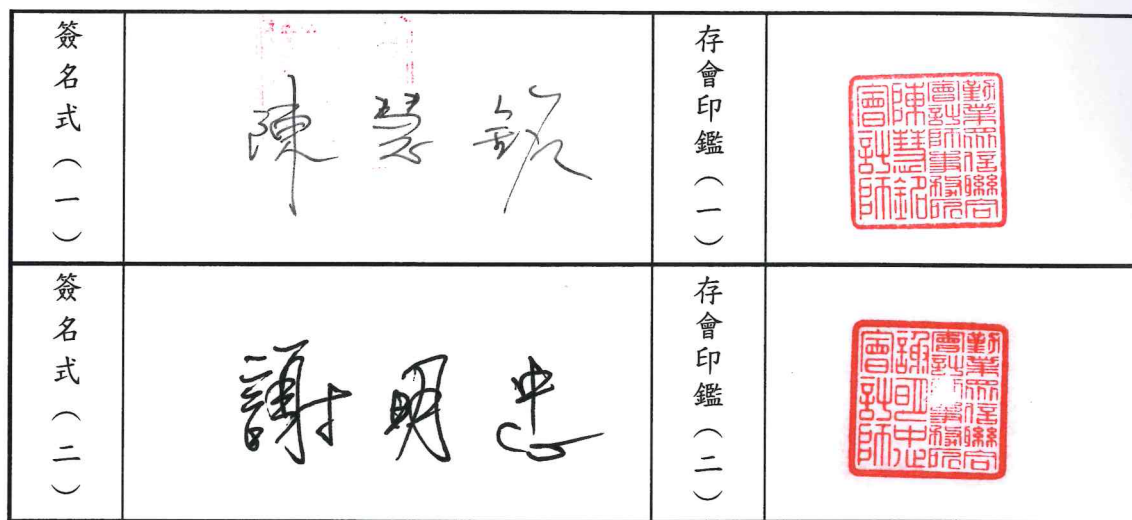 簽名式（一）
陳慧銘
存會印鑑（一）
勤業眾信聯合
會計師事務所
陳慧銘
會計師
簽名式（二）
謝明忠
存會印鑑（二）
勤業眾信聯合
會計師事務所
謝明忠
會計師